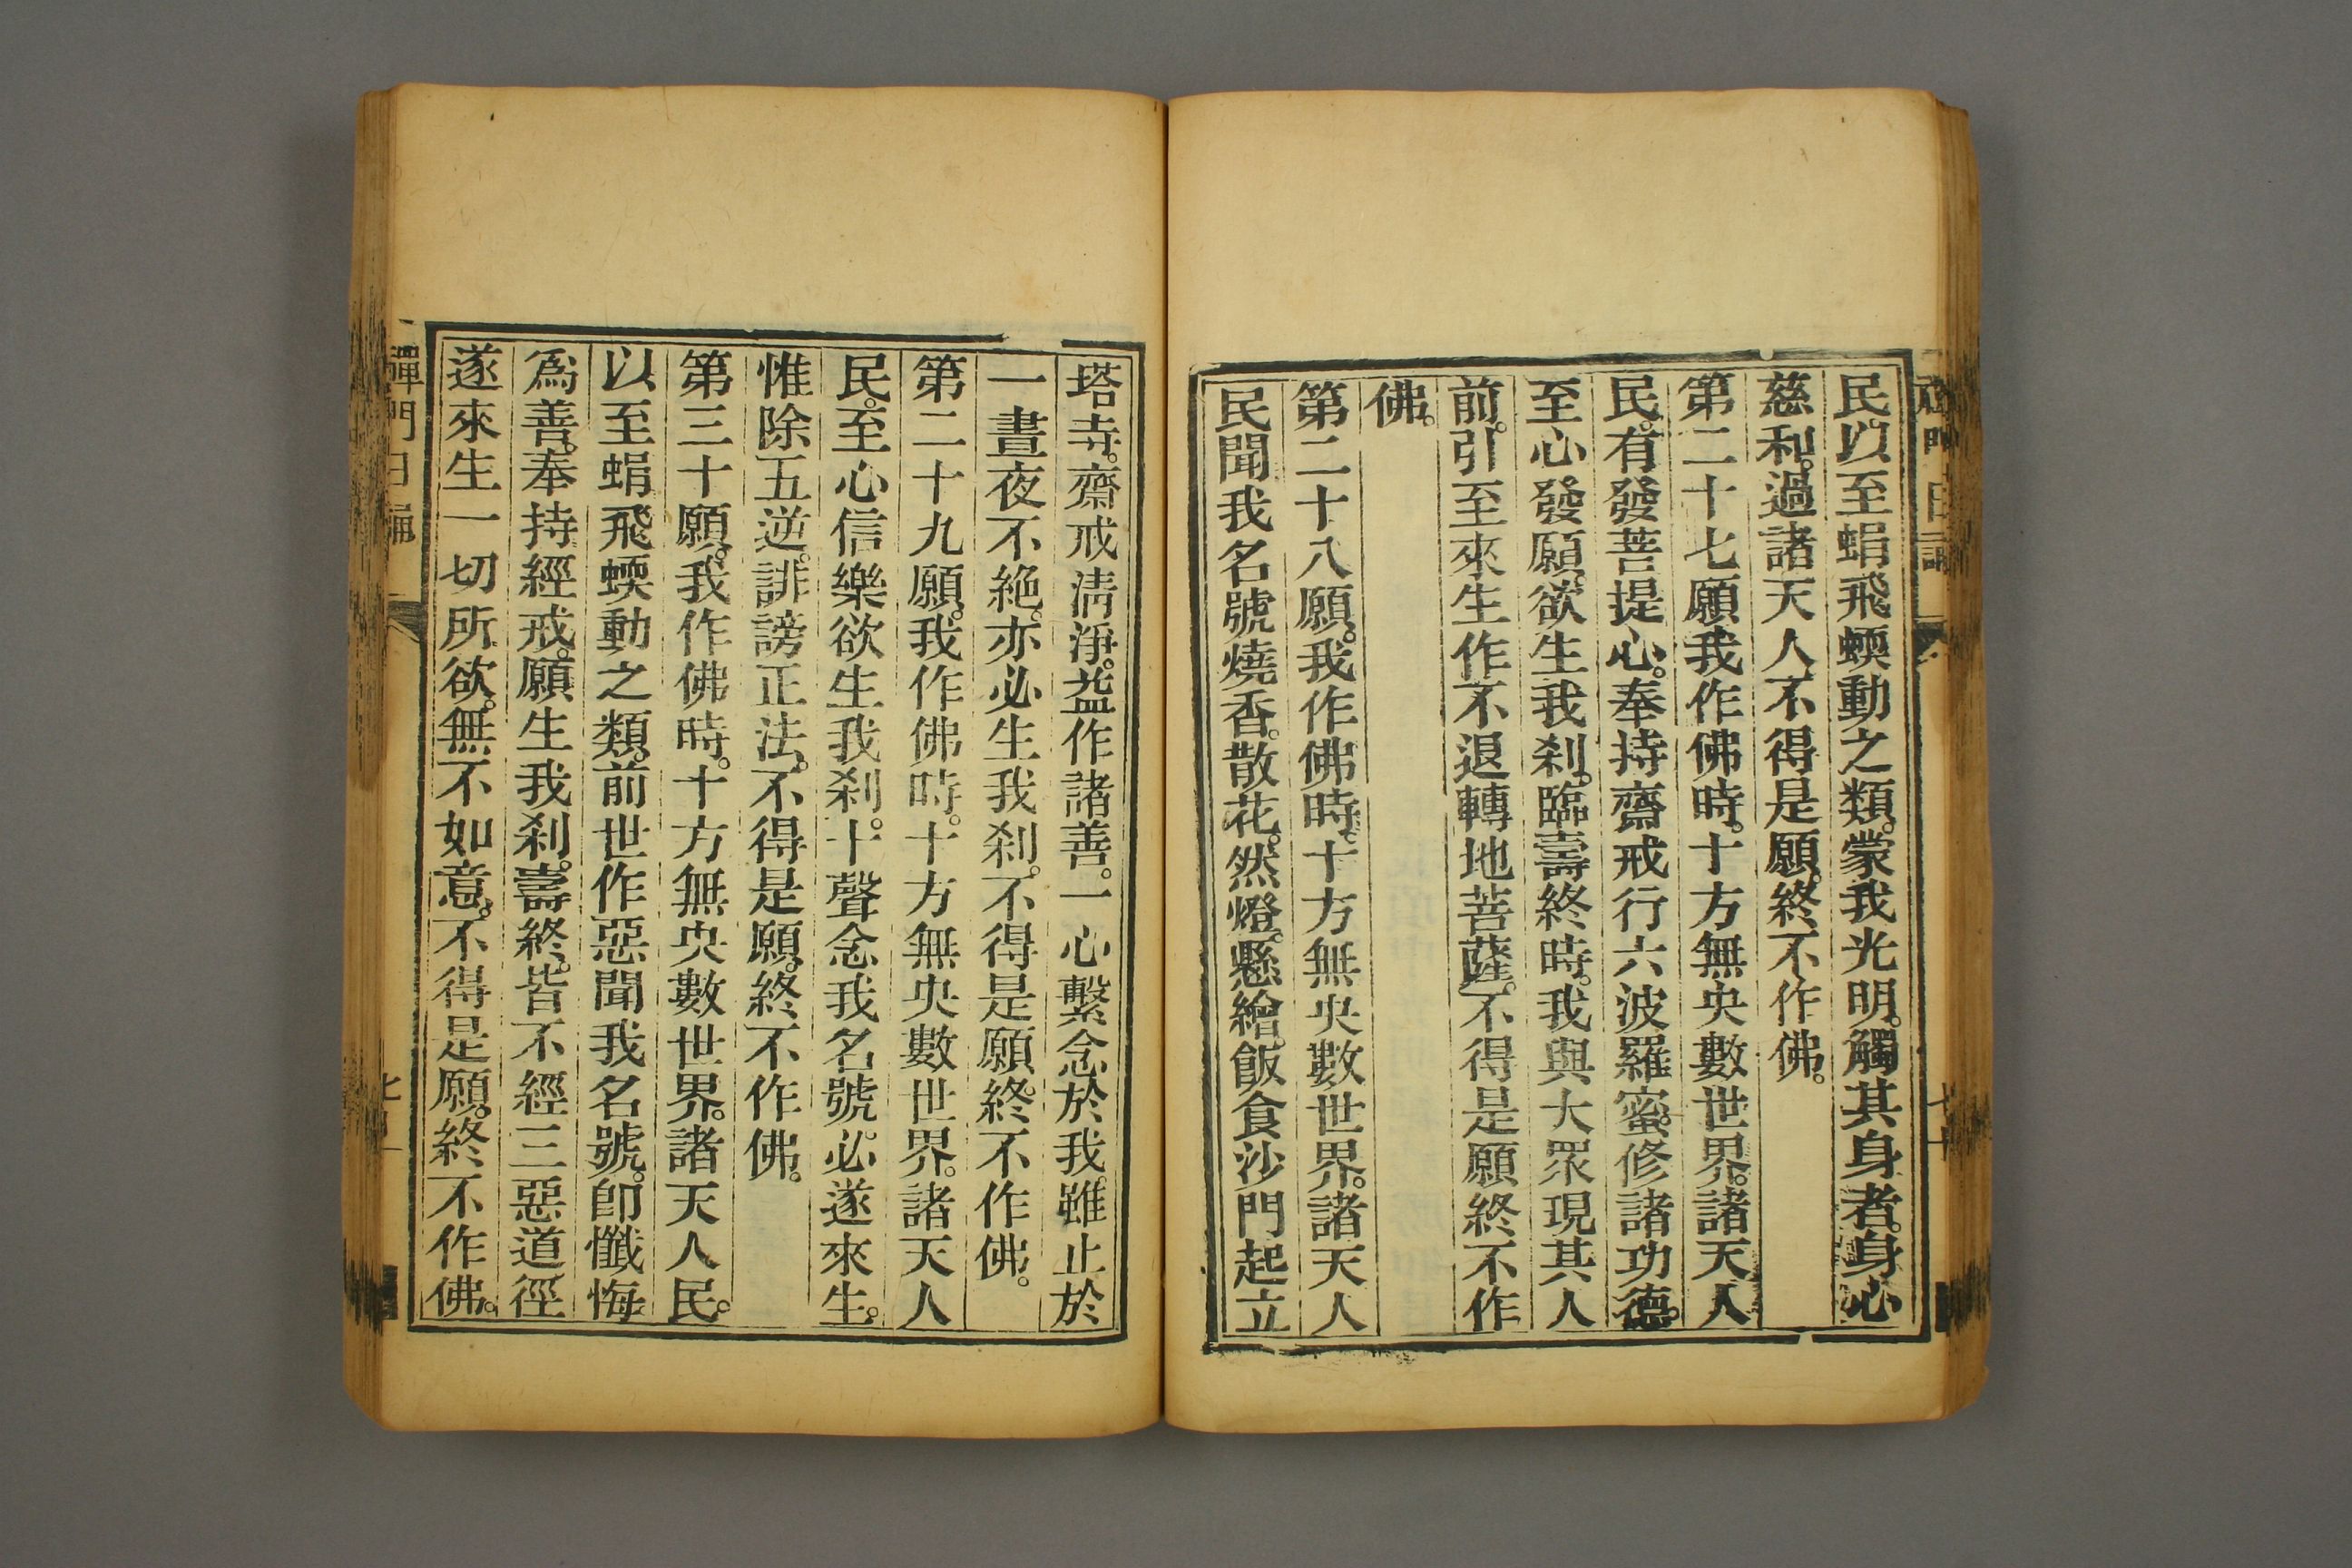 民。以至蜎飛蝡動之類。蒙我光明。觸其身者。身心
慈和。過諸天人。不得是願。終不作佛。
第二十七願。我作佛時。十方無央數世界。諸天人
民。有發菩提心。奉持齋戒行六波羅蜜。修諸功德。
至心發願。欲生我刹。臨壽終時。我與大眾現其人
前。引至來生作不退轉地菩薩。不得是願終不作
佛。
第二十八願。我作佛時。十方無央數世界。諸天人
民聞我名號燒香。散花。然燈。懸繒。飯食沙門起立
塔寺。齋戒清淨。益作諸善。一心繫念於我。雖止於
一晝夜不絶。亦必生我刹。不得是願。終不作佛。
第二十九願。我作佛時。十方無央數世界。諸天人
民。至心信樂欲生我刹。十聲念我名號。必遂來生。
惟除五逆。誹謗正法。不得是願。終不作佛。
第三十願。我作佛時。十方無央數世界。諸天人民。
以至蜎飛蝡動之類。前世作惡聞我名號。卽懺悔
爲善。奉持經戒。願生我刹。壽終。皆不經三惡道徑
遂來生一切所欲。無不如意。不得是願。終不作佛。
禪門日誦